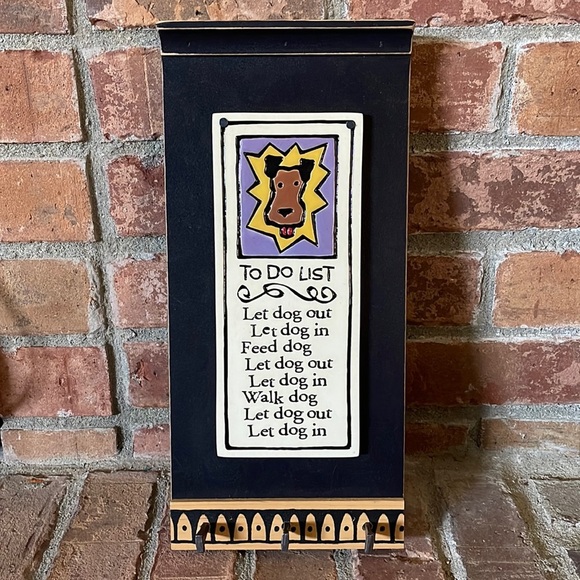 TO DO LIST
Let dog out
Let dog in
Feed dog
Let dog out
Let dog in
Walk dog
Let dog out
Let dog in